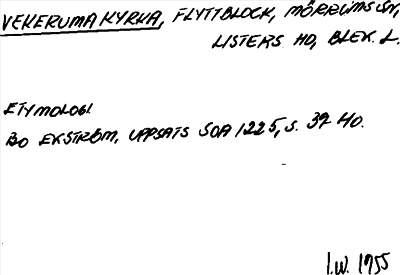 VEKERUMA KYRKA, FLYTTBLOCK, MÖRRUMS SN,
LISTERS HD, BLEK. L.
ETYMOLOGI
BO EKSTRÖM, UPPSATS SOA 1225, S. 39 40.
I.W. 1955